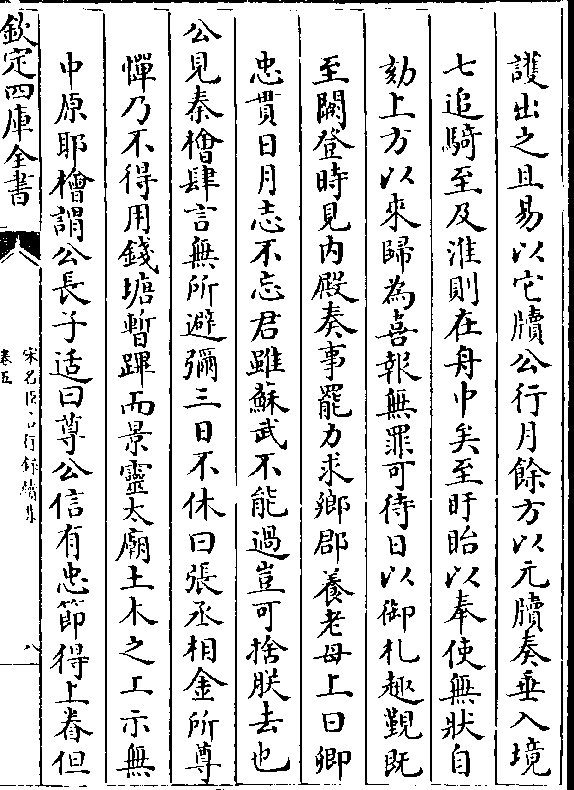 護出之且易以它牘公行月餘方以元牘奏垂入境
七追騎至及淮則在舟中矣至盱眙以奉使無狀自
劾上方以來歸為喜報無罪可待日以御札趣覲既
至闕登時見内殿奏事罷力求鄉郡養老母上曰卿
忠貫日月志不忘君雖蘇武不能過豈可捨朕去也
公見秦檜肆言無所避彌三日不休曰張丞相金所尊
憚乃不得用錢塘暫蹕而景靈太廟土木之工示無
中原耶檜謂公長子适曰尊公信有忠節得上眷但
欽定四庫全書
宋名臣言行錄續集
卷五
八